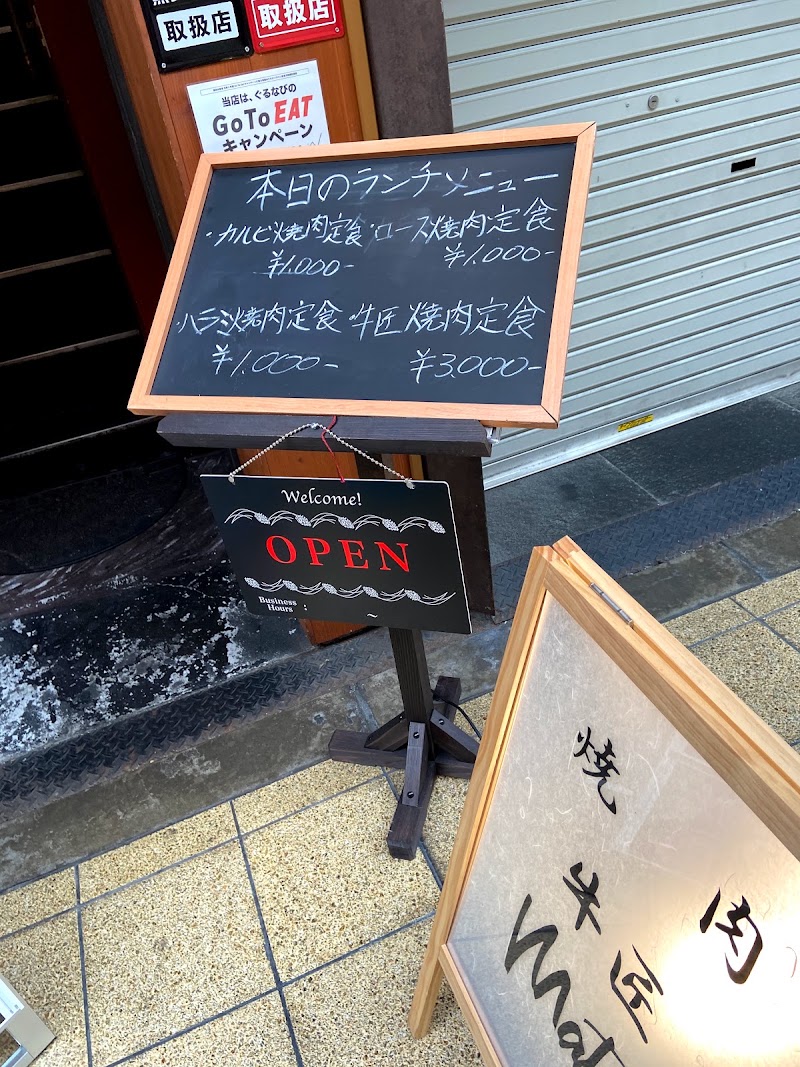 取扱店
取扱店
当店は、ぐるなびの
Go To EAT
キャンペーン
本日のランチメニュー
・カルビ焼肉定食 ・ロース焼肉定食
¥1.000- ¥1.000-
・ハラミ焼肉定食 ・牛匠焼肉定食
¥1.000- ¥3.000-
Welcome!
OPEN
Business
Hours : ~
焼肉
牛匠